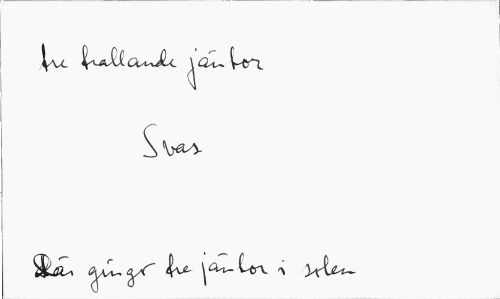 tre trallande jäntor
Svar
Där gingo tre jäntor i solen